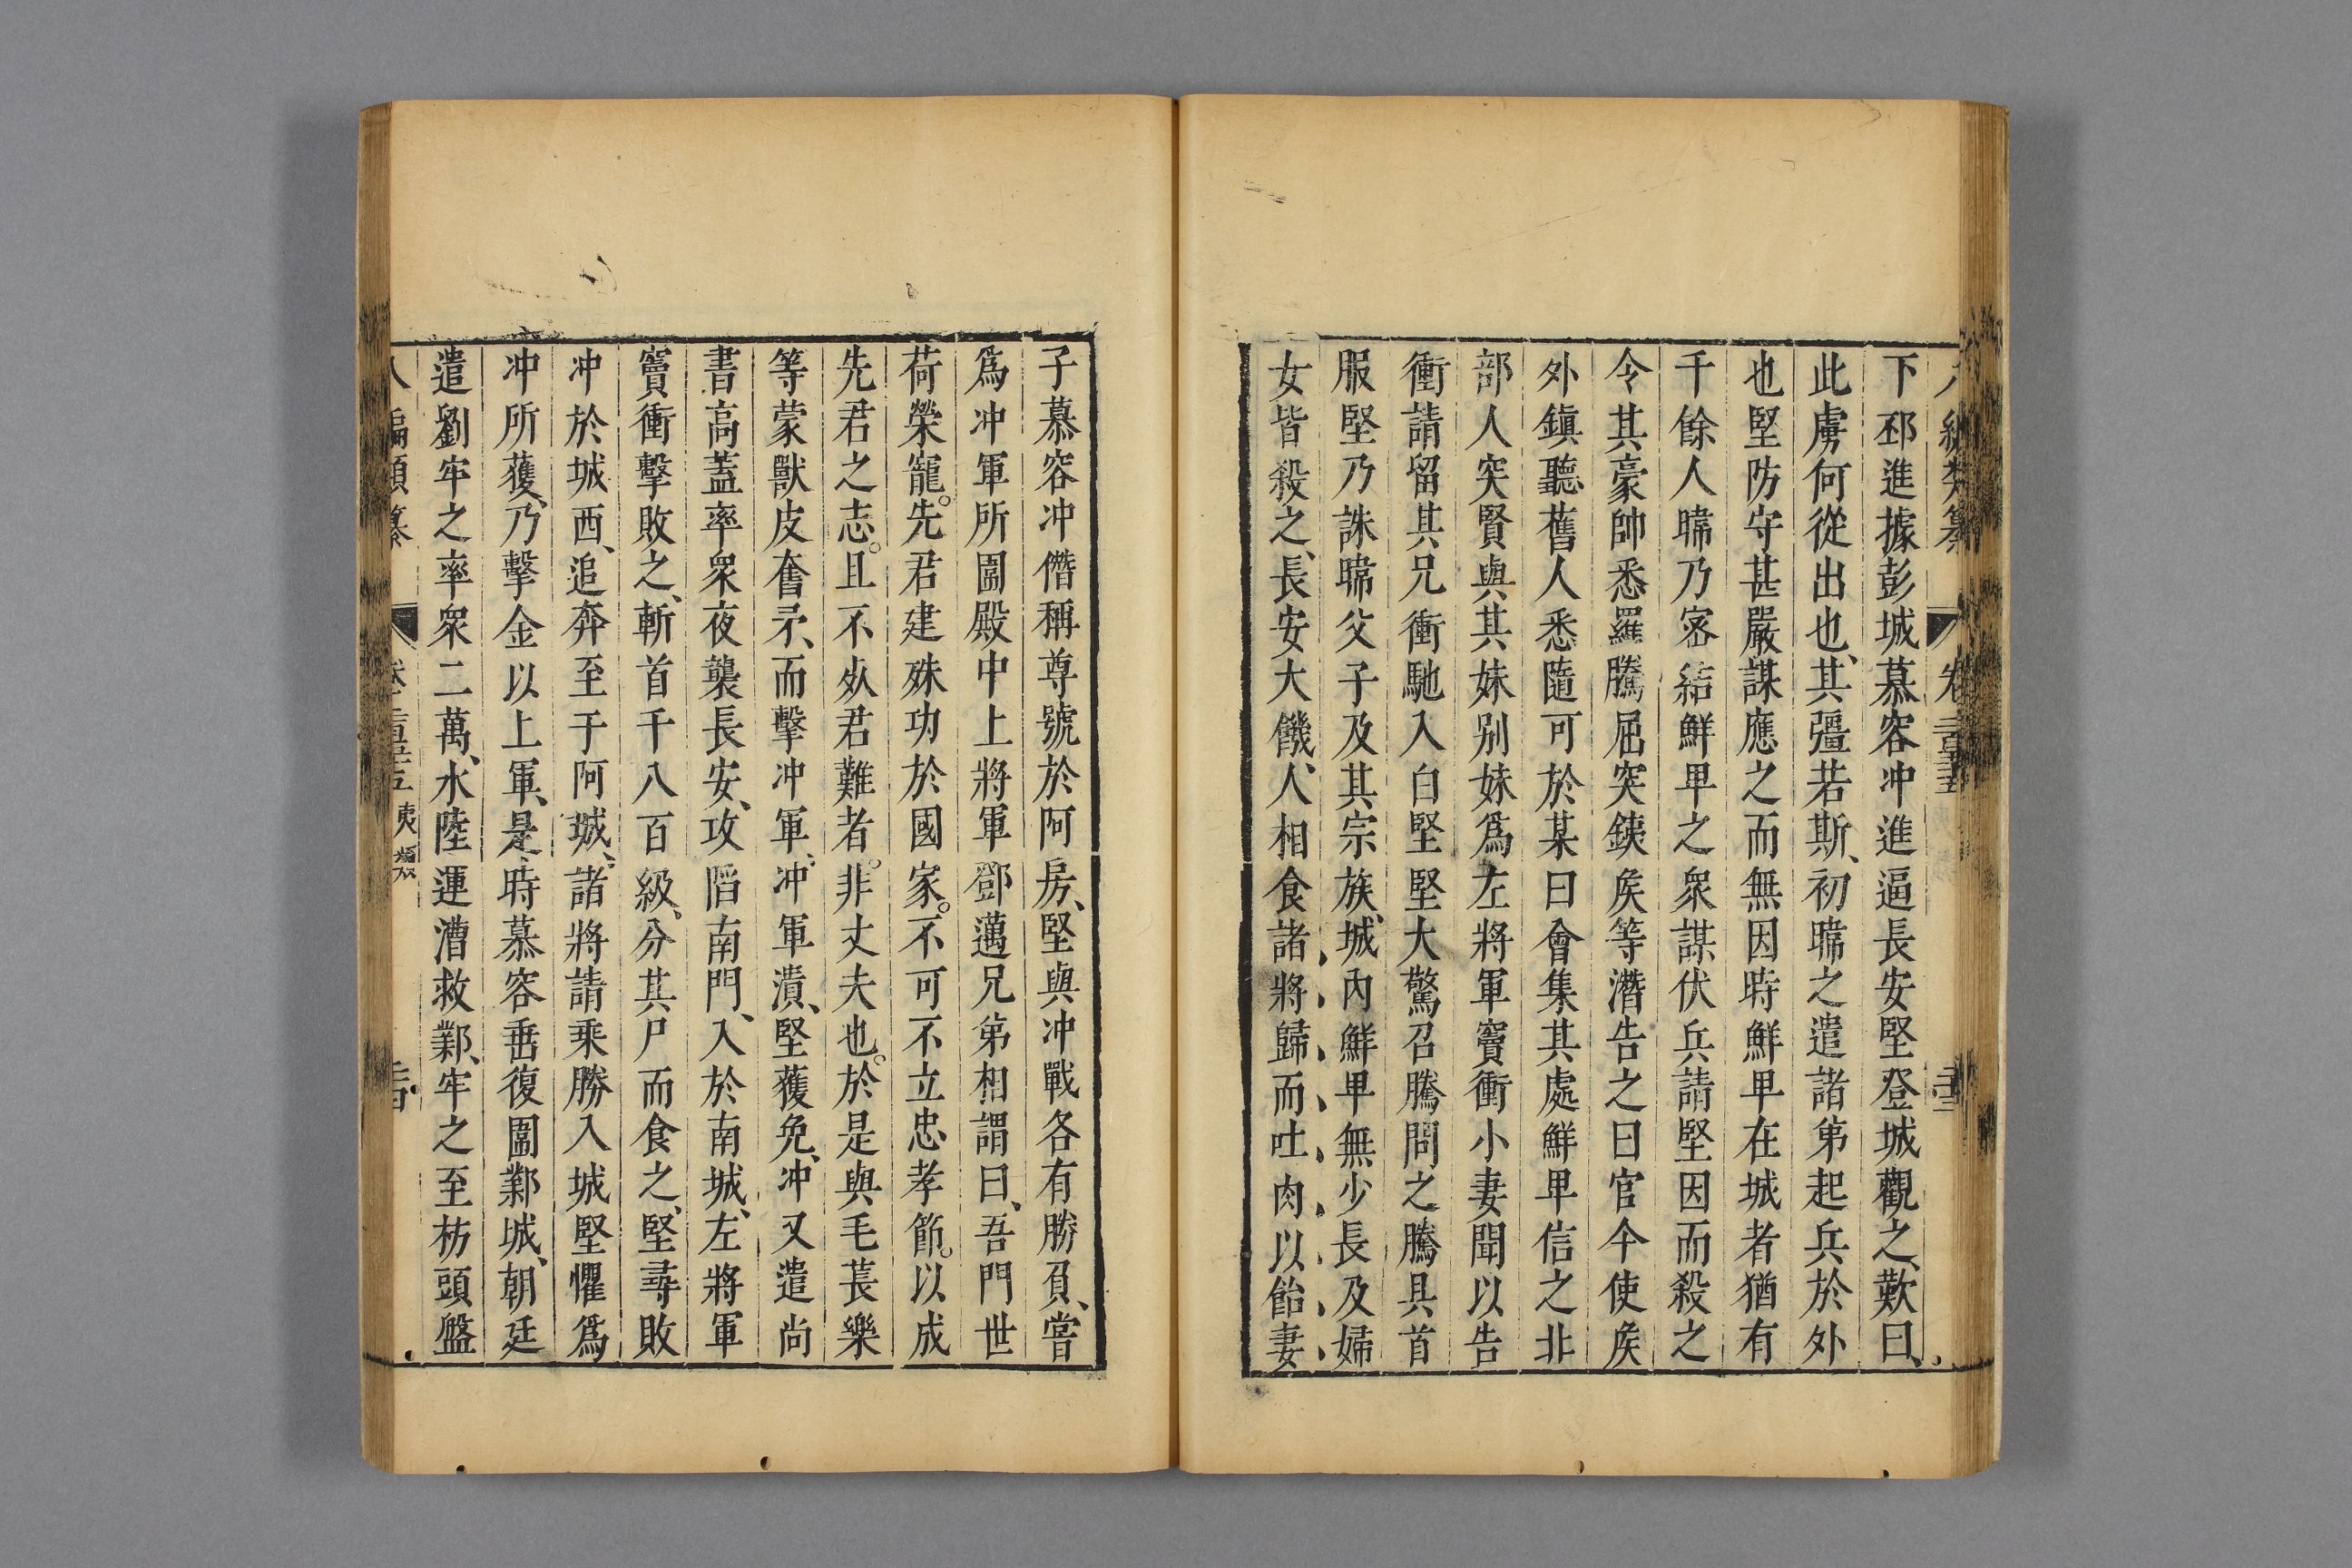 下邳進據彭城慕容冲進逼長安堅登城觀之、歎曰、
此虜何從出也、其彊若斯、初暐之遣諸弟起兵於外
也堅防守甚嚴謀應之而無因時鮮卑在城者猶有
千餘人暐乃宻結鮮卑之衆謀伏兵請堅因而殺之
令其豪帥悉羅騰屈突鐵侯等潛告之曰官今使侯
外鎮聽舊人悉隨可於某日會集其處鮮卑信之北
部人突賢與其妹别妹爲左將軍竇衝小妻聞以告
衝請留其兄衝馳入白堅堅大驚召騰問之騰具首
服堅乃誅暐父子及其宗族、城內鮮卑無少長及婦
女皆殺之、長安大饑、人相食諸將歸而吐肉以飴妻
子慕容冲僭稱尊號於阿房、堅與冲戰各有勝負、嘗
爲冲軍所圍殿中上將軍鄧邁兄弟相謂曰、吾門世
荷榮寵。先君建殊功於國家。不可不立忠孝節。以成
先君之志。且不𣦸君難者。非丈夫也。於是與毛萇樂
等蒙獸皮奮矛、而擊冲軍、冲軍潰、堅獲免、冲又遣尚
書高蓋率衆夜襲長安、攻陷南門、入於南城、左將軍
竇衝擊敗之、斬首千八百級、分其尸而食之、堅尋敗
冲於城西、追奔至于阿城、諸將請乘勝入城堅懼爲
冲所獲、乃擊金以上軍、是時慕容垂復圍鄴城、朝廷
遣劉牢之率衆二萬、水陸運漕救鄴、牢之至枋頭盤
八編類纂 卷二百五十五 夷類